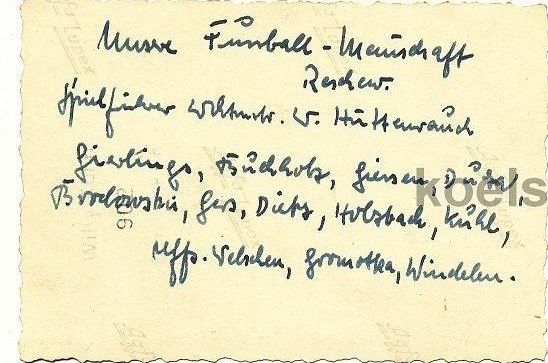 Unsere Fussball-Mannschaft
Reschew.
Spielführer Wchtmstr. W. Hüttenrauch
Gierlings, Buchholz, Giersen, Duda,
Brodowski, Gers, Dietz, Holzbach, Kühl,
Uffz. Velschen, Gromotka, Windelen.
koels
306